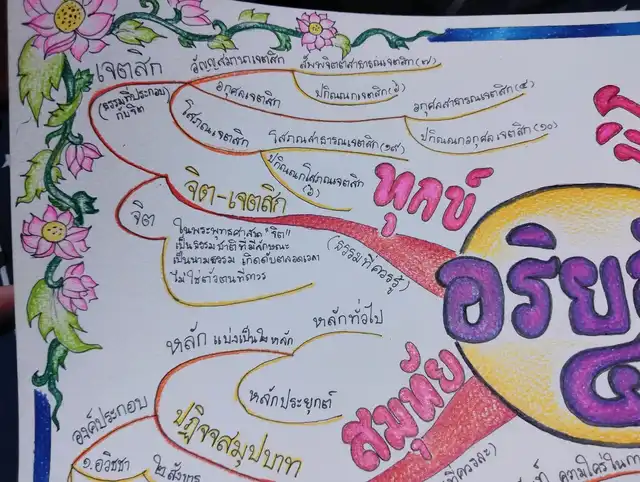 เจตสิก
(ธรรมที่ประกอบ
กับจิต)
อัญญสมานาเจตสิก
สัพพจิตตสาธารณเจตสิก (๗)
ปกิณณกเจตสิก (๖)
อกุศลเจตสิก
อกุศลสาธารณเจตสิก (๔)
ปกิณณกอกุศลเจตสิก (๑๐)
โสภณเจตสิก
โสภณสาธารณเจตสิก (๑๙)
ปกิณณกโสภณเจตสิก
(๖)
จิต-เจตสิก
จิต
ในพระพุทธศาสนา "จิต"
เป็นธรรมชาติที่มีลักษณะ
เป็นนามธรรม เกิดดับตลอดเวลา
ไม่ใช่ตัวตนที่ถาวร
ทุกข์
(ธรรมที่ควรรู้)
อริย
๔
หลัก แบ่งเป็น ๒ หลัก
หลักทั่วไป
หลักประยุกต์
สมุทัย
ปฏิจจสมุปบาท
องค์ประกอบ
๑. อวิชชา
๒. สังขาร
ความใคร่ในกา